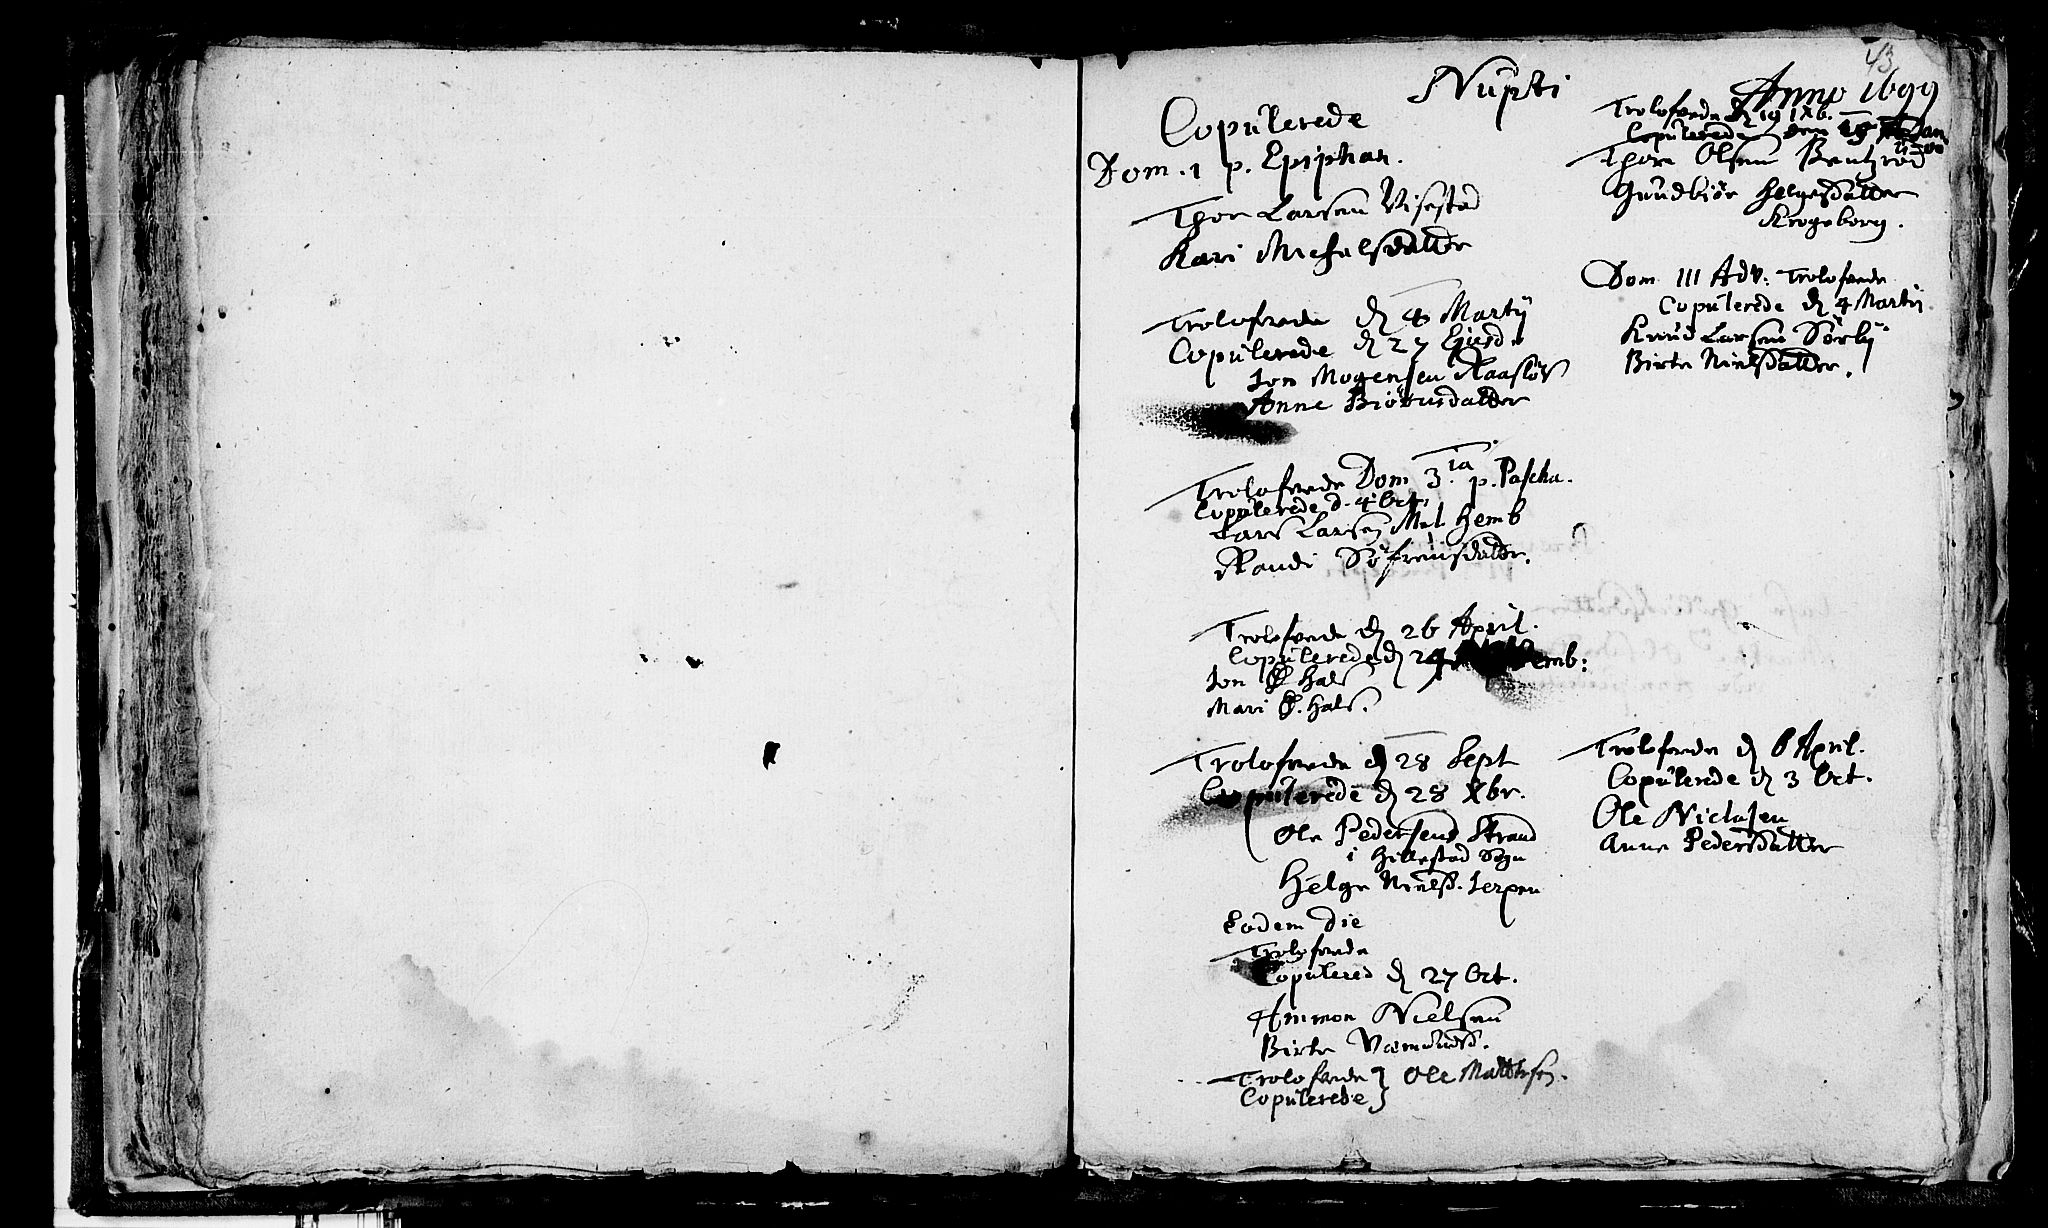 43
Nupti Anno 1699
Copulerede
Dom. 1 p. Epiphan.
Thor Larsen Visestad
Kari Michelsdatter
Trolofvede d 4 Martij
Copulerede d 27 Ejusd.
Jon Mogensen Raasløs
Anne Biørnsdatter
Trolofvede Dom 3tia p. Pascha.
Copulerede d. 4 Oct.
Lars Larsen Hemb
Randi Søfrensdatter.
Trolofvede d 26 April.
Copulerede d 29 emb:
Jon Hals
Mari Hals.
Trolofvede d 28 Sept
Copulerede d 28 Xbr.
Ole Pedersens Strand
i Hillestad Sogn
Helge Nielsd. Jerpen
Eodem die
Trolofvede
Copulered d 27 Oct.
Ammon Nielsen
Birte Væmundsd.
Trolofvede } Ole Mattisen.
Copulerede }
Trolofvede d 19 IXb.
Copulerede den Jan
1700
Thore Olsen Bentzrød
Gundbiør Helgesdatter
Krogeborg.
Dom III Adv: Trolofvede
Copulerede d 4 Martij
Knud Larsen Sørby
Birte Nielsdatter.
Trolofvede d 6 April.
Copulerede d 3 Oct.
Ole Niclasen
Anne Pedersdatter